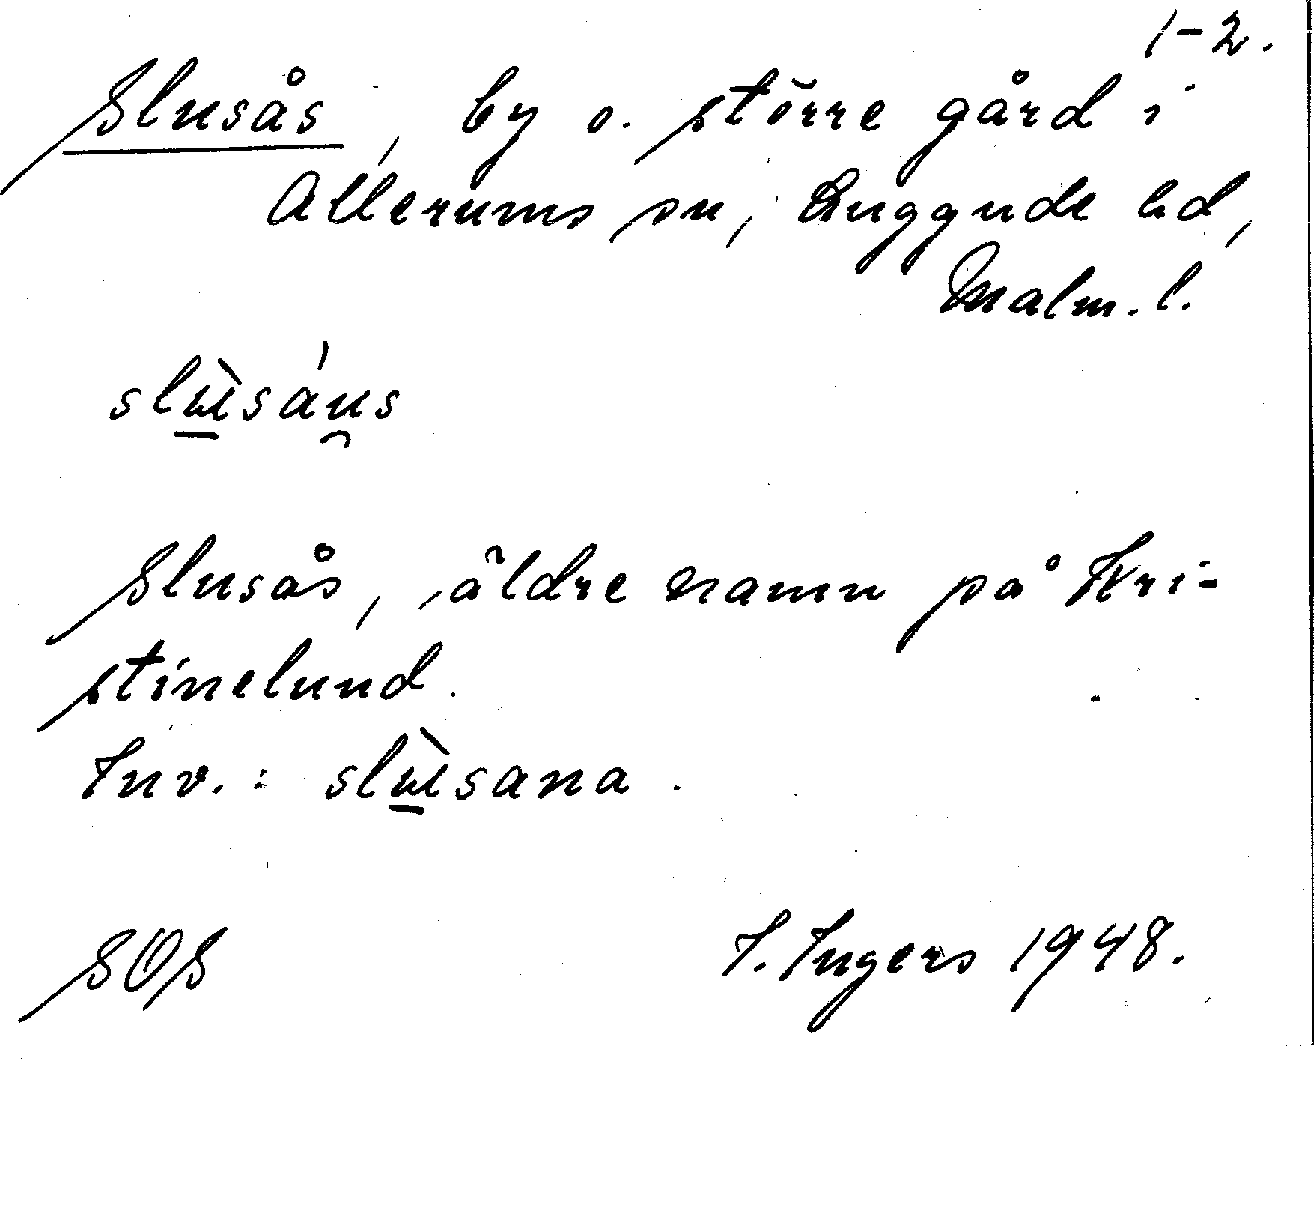 1-2.
Slusås, by o. större gård i
Allerums sn, Luggude hd,
Malm. l.
slɯ̲̀sáu̯s
Slusås, äldre namn på Kri-
stinelund.
Inv.: slɯ̲̀sana.
SOS I. Ingers 1948.